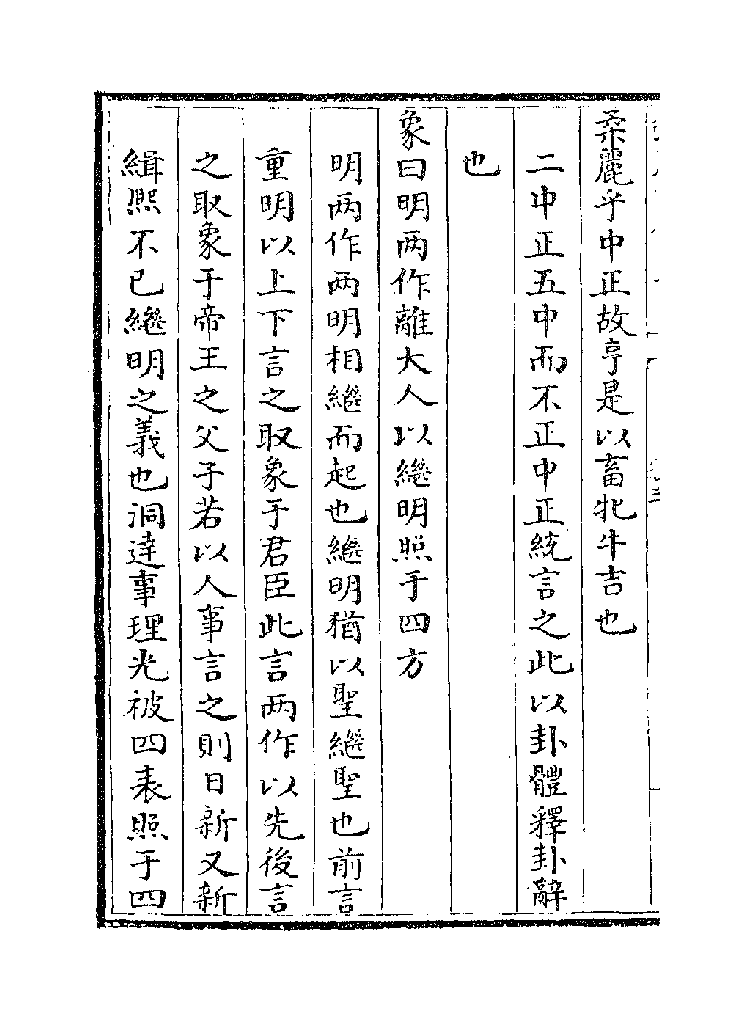 柔麗乎中正故亨是以畜牝牛吉也
二中正五中而不正中正統言之此以卦體釋卦辭
也
象曰明两作離大人以繼明照于四方
明两作两明相繼而起也繼明猶以聖繼聖也前言
重明以上下言之取象于君臣此言两作以先後言
之取象于帝王之父子若以人事言之則日新又新
緝熙不已繼明之義也洞達事理光被四表照于四